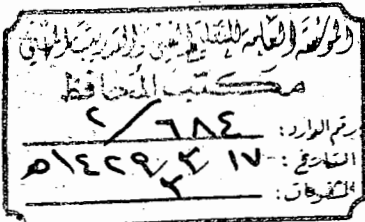 المؤسسة العامة للتعليم الفني والتدريب المهني
مكتب المحافظ
رقم الوارد: ٢/٦٨٤
التاريخ: ١٧/٣/١٤٢٩هـ
المشفوعات: ٣